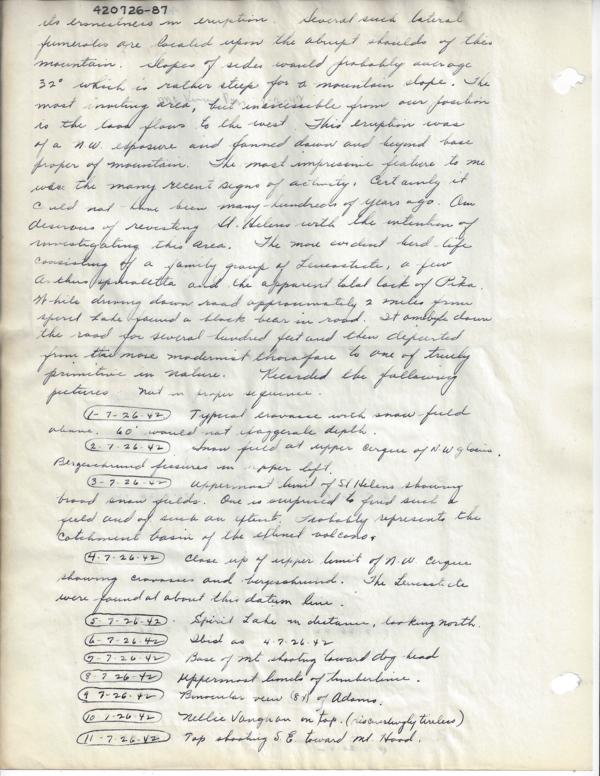 420726-87
its  in eruption. Several such lateral
fumeroles are located upon the abrupt shoulds of this
mountain. Slopes of sides would probably average
32° which is rather steep for a mountain slope. The
most inviting area, but inaccessible from our position
is the lava flows to the west. This eruption was
of a N.W. exposure and fanned down and beyond base
proper of mountain. The most impressive feature to me
was the many recent signs of activity. Certainly it
could not have been many hundreds of years ago. Am
desirous of revisiting St. Helens with the intention of
investigating this area. The more evident bird life
consisting of a family group of Leucosticte, a few
Anthus spinoletta and the apparent total lack of Pika.
While driving down road approximately 2 miles from
Spirit Lake found a black bear in road. It ambled down
the road for several hundred feet and then departed
from the more modernist thorofare to one of truely
primitive in nature. Recorded the following
pictures. Not in proper sequence.
1-7-26-42 Typical cravasse with snow field
above. 60' would not exaggerate depth.
2-7-26-42 Snow field at upper cerque of N.W glacier.
Bergeschrund fissures in upper left.
3-7-26-42 Uppermost limit of St Helens showing
broad snow fields. One is surprised to find such a
field and of such an extent. Probably represents the
catchment basin of the extinct volcano.
4-7-26-42 Close up of upper limit of N.W. Cerque
showing cravasses and bergeschrund. The Leucosticte
were found at about this datum line.
5-7-26-42 Spirit Lake in distance, looking north.
6-7-26-42 Ibid as 4-7-26-42
7-7-26-42 Base of Mt shooting toward dog head
8-7-26-42 Uppermost limits of timberline.
9-7-26-42 Binocular view (8X) of Adams.
10-7-26-42 Nellie Vaughan on top. ( tireless)
11-7-26-42 Top shooting S.E. toward Mt. Hood.